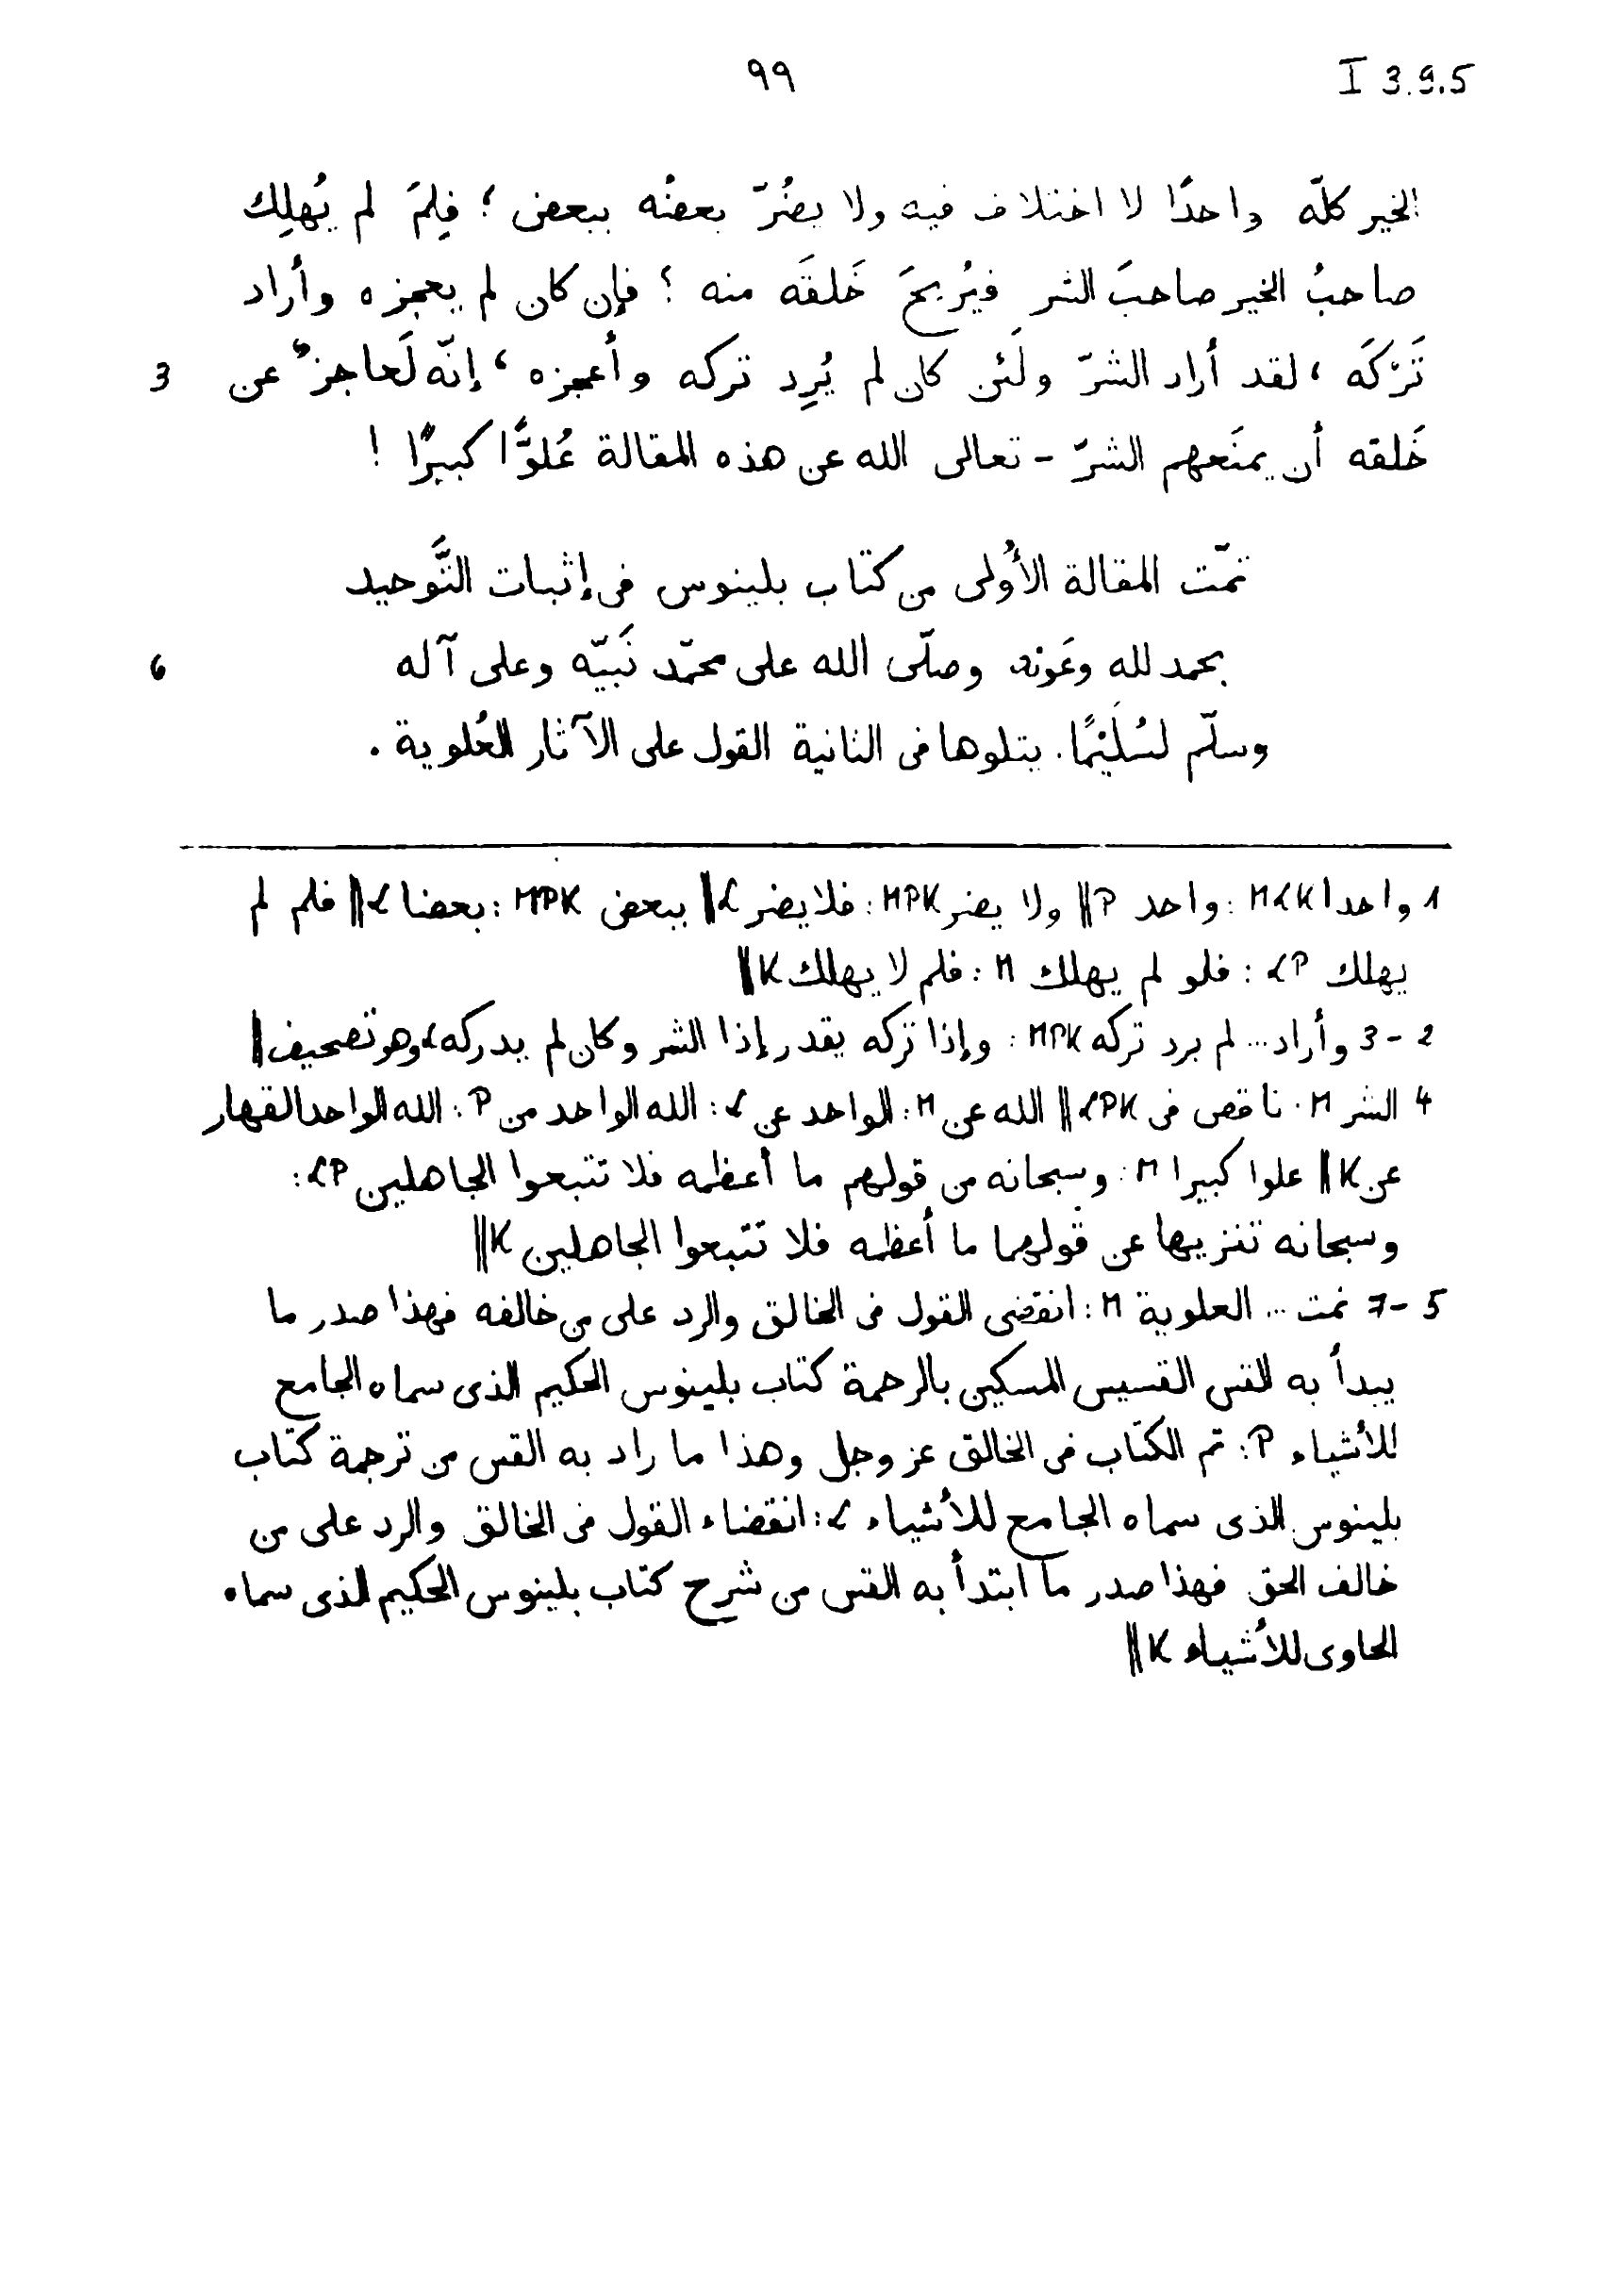 ٩٩
I 3.9.5
الخير كلّه واحدًا لا اختلاف فيه ولا يضُرّ بعضُه ببعض ؛ فلِمَ لم يُهلِك
صاحبُ الخير صاحبَ الشر فيُريحَ خَلقَه منه ؟ فإن كان لم يعجزه وأراد
تَرْكَه ، لقد أراد الشرّ ولَئن كان لم يُرِد تركه وأعجزه ، إنّه لَعاجزٌ عن 3
خَلقه أن يمنَعهم الشرّ - تعالى الله عن هذه المقالة عُلوًّا كبيرًا !
تمّت المقالة الأُولى من كتاب بلينوس فى إثبات التَّوحيد
بحمد لله وعَونه وصلّى الله على محمّد نَبيّه وعلى آله 6
وسلّم تسْليْمًا. يتلوها فى الثانية القول على الآثار العُلوية .
1 واحدا MLK : واحد P || ولا يضر MPK : فلا يضر L || ببعض MPK : بعضا L || فلم لم
يهلك LP : فلو لم يهلك M : فلم لا يهلك K ||
2 - 3 وأراد ... لم يرد تركه MPK : وإذا تركه يقدر إذا الشر وكان لم يدركه L وهو تصحيف ||
4 الشر M . ناقص فى LPK || الله عن M : الواحد عن L : الله الواحد من P : الله الواحد القهار
عن K || علوا كبيرا M : وسبحانه من قولهم ما أعظمه فلا تتبعوا الجاهلين LP :
وسبحانه تنزيها عن قولهما ما أعظمه فلا تتبعوا الجاهلين K ||
5 - 7 تمت ... العلوية M : انقضى القول فى الخالق والرد على من خالفه فهذا صدر ما
يبدأ به القس القسيس المسكين بالرحمة كتاب بلينوس الحكيم الذى سماه الجامع
للأشياء P : تم الكتاب فى الخالق عز وجل وهذا ما راد به القس من ترجمة كتاب
بلينوس الذى سماه الجامع للأشياء L : انقضاء القول فى الخالق والرد على من
خالف الحق فهذا صدر ما ابتدأ به القس من شرح كتاب بلينوس الحكيم الذى سماه
الحاوى للأشياء K ||